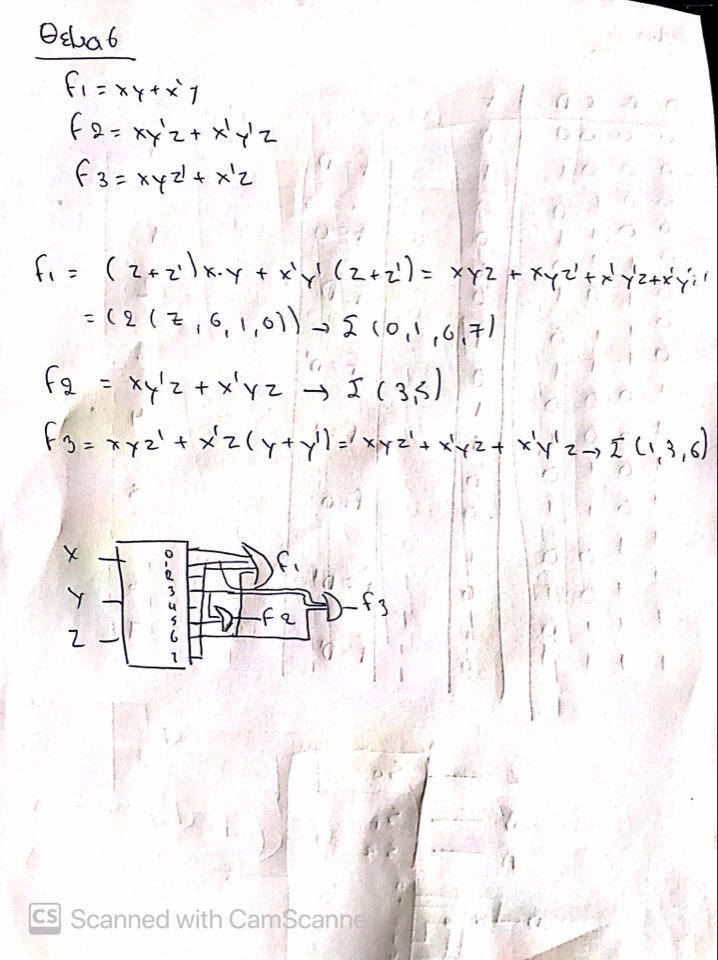 Θέμα 6
f1 = xy + x'y
f2 = xy'z + x'y'z
f3 = xyz' + x'z
f1 = (z+z')x·y + x'y'(z+z') = xyz + xyz' + x'y'z + x'y'z'
= (2(7,6,1,0)) → Σ(0,1,6,7)
f2 = xy'z + x'yz → Σ(3,5)
f3 = xyz' + x'z(y+y') = xyz' + x'yz + x'y'z → Σ(1,3,6)
X 0 f1
1
2
Y 3 f3
4
5 f2
Z 6
7
CS Scanned with CamScanne